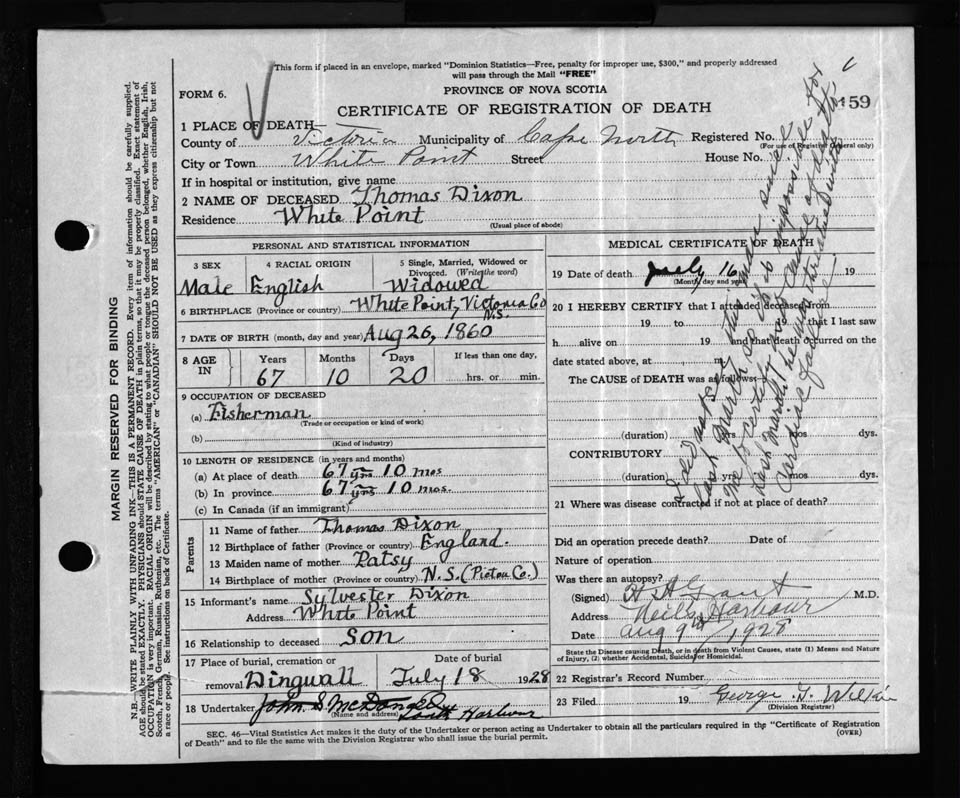 This form if placed in an envelope, marked "Dominion Statistics—Free, penalty for improper use, $300," and properly addressed
will pass through the Mail "FREE"
FORM 6.
PROVINCE OF NOVA SCOTIA
CERTIFICATE OF REGISTRATION OF DEATH
159
1 PLACE OF DEATH
County of Victoria Municipality of Cape North Registered No.
(For use of Registrar General only)
City or Town White Point Street House No.
If in hospital or institution, give name
2 NAME OF DECEASED Thomas Dixon
Residence White Point
(Usual place of abode)
PERSONAL AND STATISTICAL INFORMATION
3 SEX 4 RACIAL ORIGIN 5 Single, Married, Widowed or Divorced. (Write the word)
Male English Widowed
6 BIRTHPLACE (Province or country) White Point, Victoria Co N.S.
7 DATE OF BIRTH (month, day and year) Aug 26, 1860
8 AGE IN Years Months Days If less than one day,
67 10 20 hrs. or min.
9 OCCUPATION OF DECEASED
(a) Fisherman
(Trade or occupation or kind of work)
(b)
(Kind of industry)
10 LENGTH OF RESIDENCE (in years and months)
(a) At place of death 67 yrs 10 mos
(b) In province 67 yrs 10 mos.
(c) In Canada (if an immigrant)
Parents
11 Name of father Thomas Dixon
12 Birthplace of father (Province or country) England.
13 Maiden name of mother Patsy
14 Birthplace of mother (Province or country) N.S. (Pictou Co.)
15 Informant's name Sylvester Dixon
Address White Point
16 Relationship to deceased Son
17 Place of burial, cremation or removal Date of burial
Dingwall July 18 1928
18 Undertaker John S. McDonald
(Name and address) South Harbour
MEDICAL CERTIFICATE OF DEATH
19 Date of death July 16 19
(Month, day and year)
20 I HEREBY CERTIFY that I attended deceased from
19 to 19 that I last saw
h alive on 19 and that death occurred on the
date stated above, at m.
The CAUSE of DEATH was as follows:
(duration) yrs. mos. dys.
CONTRIBUTORY
(duration) yrs. mos. dys.
I did not see this man since
last March so it is impossible for
me to certify cause of death.
Last March he
Cardiac failure
21 Where was disease contracted if not at place of death?
Did an operation precede death? Date of
Nature of operation
Was there an autopsy?
(Signed) H A Grant M.D.
Address Neils Harbour
Date Aug 9th 1928
State the Disease causing Death, or in death from Violent Causes, state (1) Means and Nature of Injury, (2) whether Accidental, Suicidal or Homicidal.
22 Registrar's Record Number
23 Filed 19 George T. Wilkie
(Division Registrar)
SEC. 46—Vital Statistics Act makes it the duty of the Undertaker or person acting as Undertaker to obtain all the particulars required in the "Certificate of Registration
of Death" and to file the same with the Division Registrar who shall issue the burial permit.
(OVER)
MARGIN RESERVED FOR BINDING
N.B.—WRITE PLAINLY WITH UNFADING INK—THIS IS A PERMANENT RECORD. Every item of information should be carefully supplied.
AGE should be stated EXACTLY. PHYSICIANS should STATE CAUSE OF DEATH in plain terms, so that it may be properly classified. Exact statement of
OCCUPATION is very important. RACIAL ORIGIN will be described by stating to what people or tongue the deceased person belonged, whether English, Irish,
Scotch, French, German, Russian, Ruthenian, etc. The terms "AMERICAN" or "CANADIAN" SHOULD NOT BE USED as they express citizenship but not
a race or people. See instructions on back of Certificate.